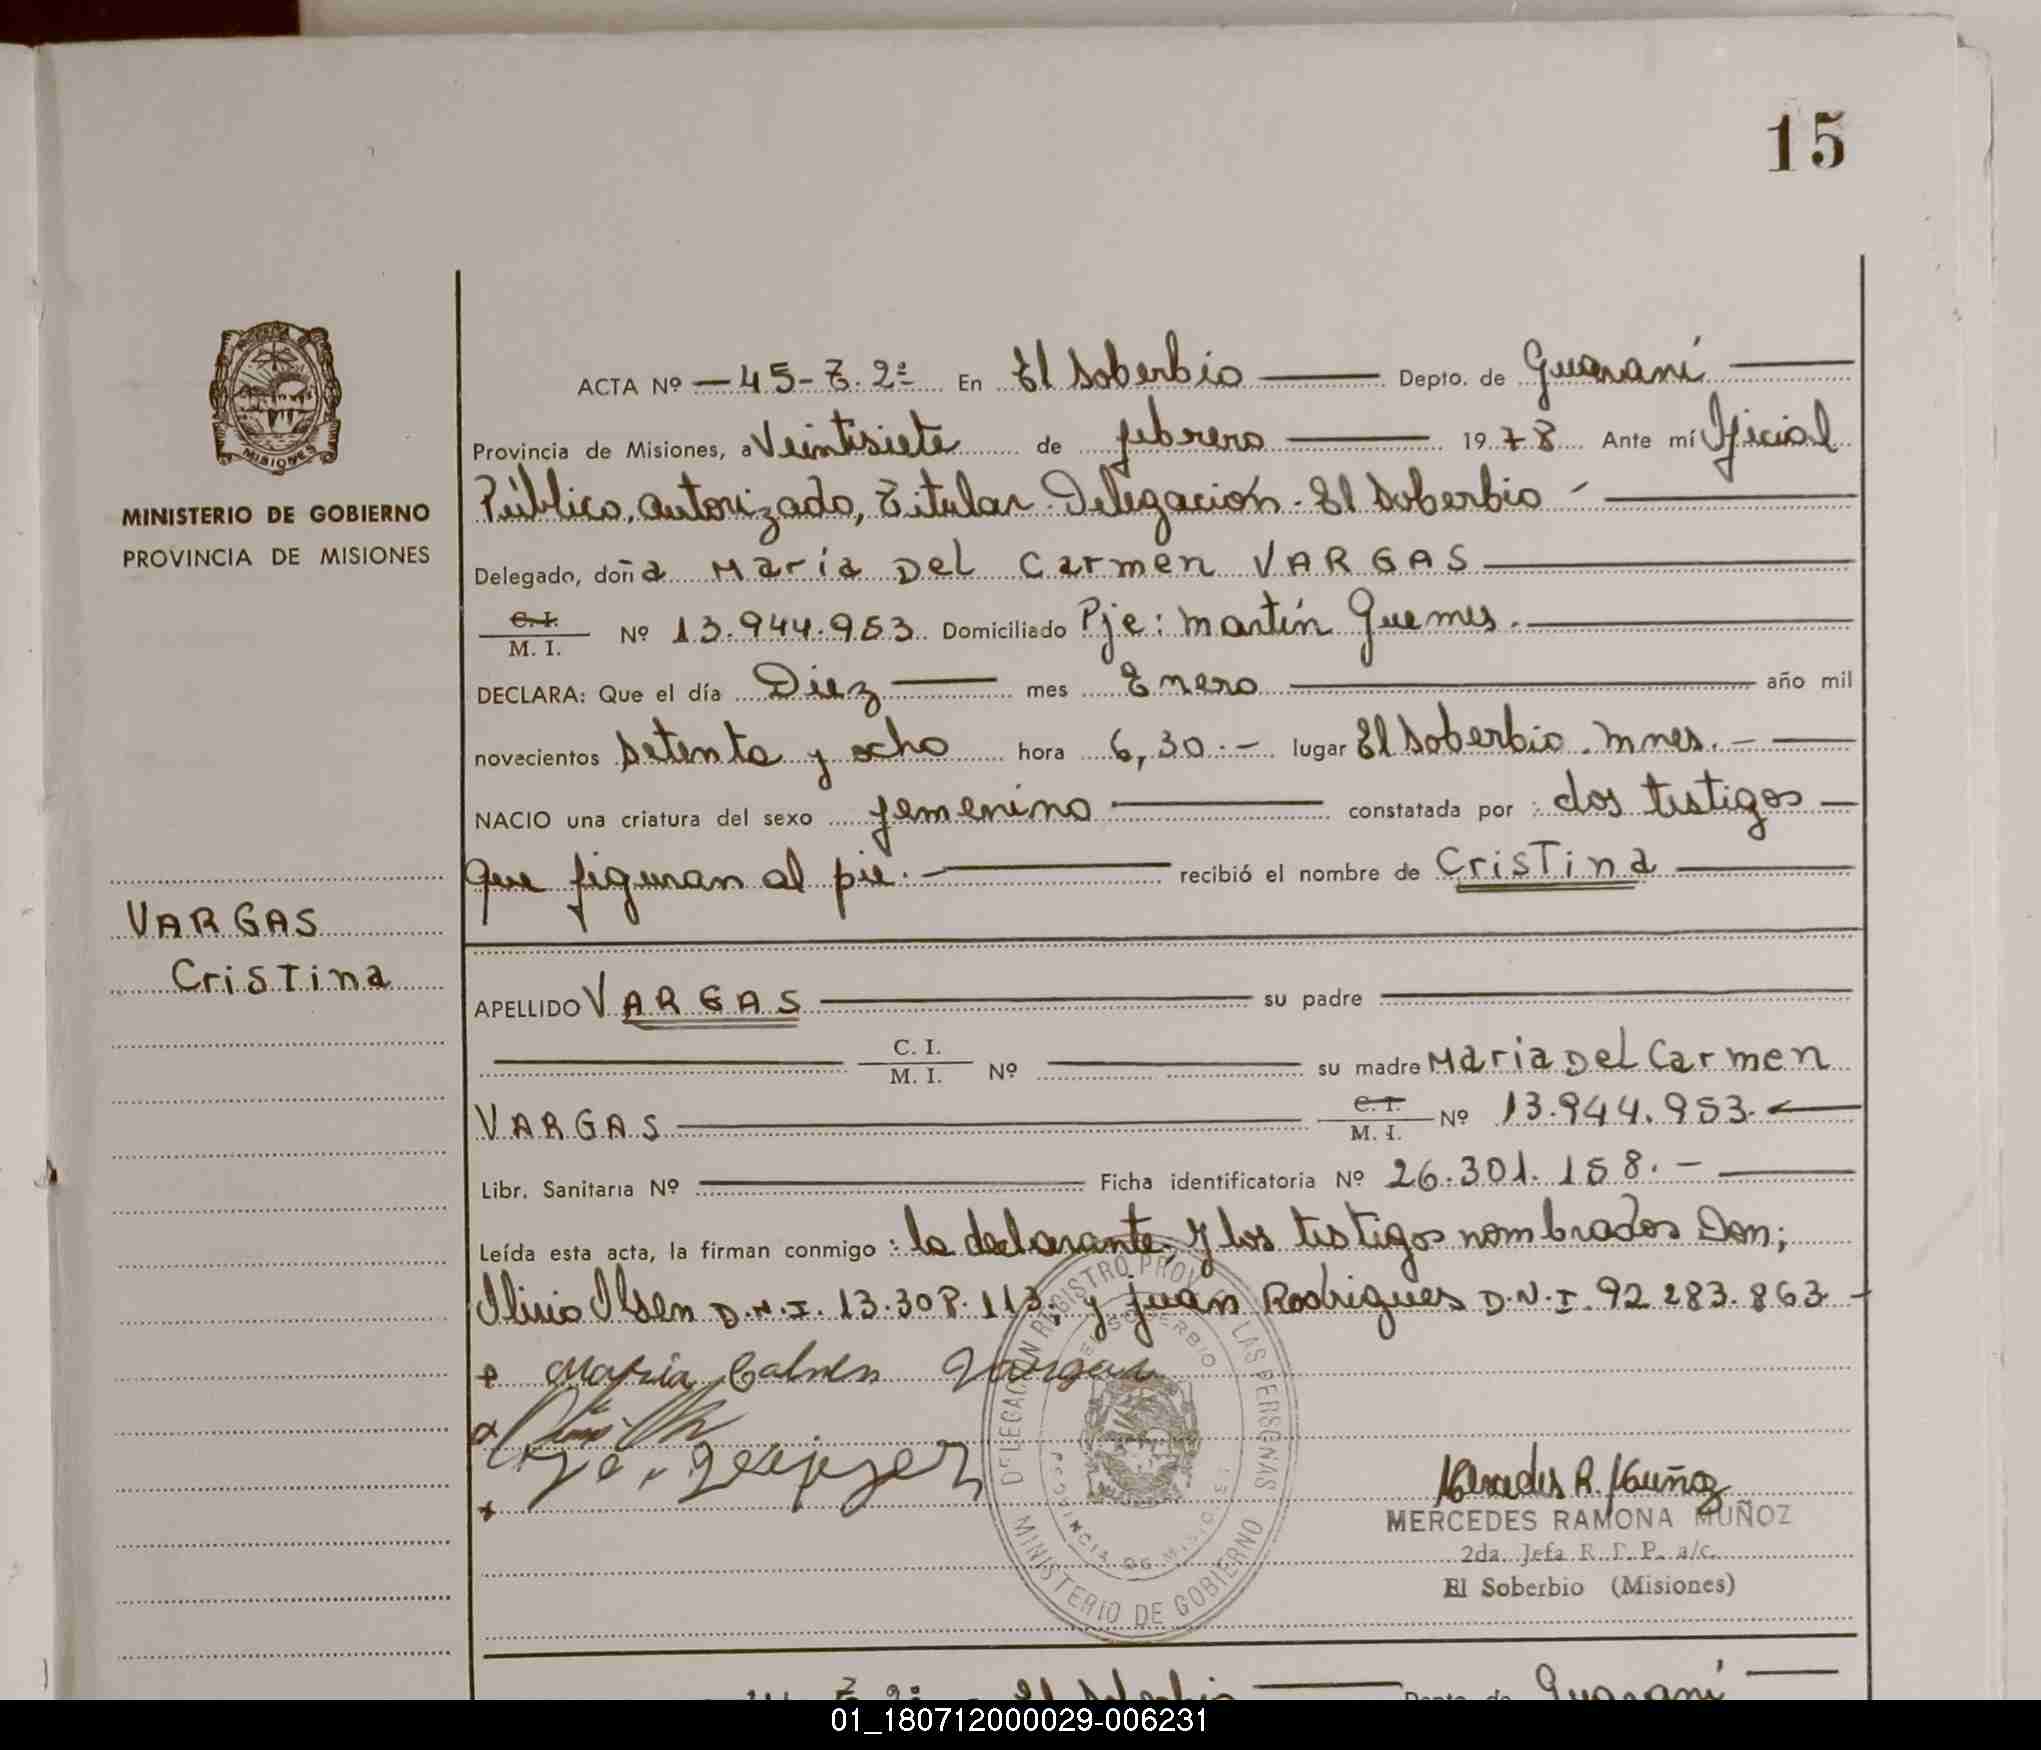 15
MISIONES
MINISTERIO DE GOBIERNO
PROVINCIA DE MISIONES
VARGAS
Cristina
ACTA Nº — 45 - T. 2º En El Soberbio — Depto. de Guaraní —
Provincia de Misiones, a Veintisiete de febrero — 1978 Ante mí Oficial
Público, autorizado, Titular Delegación - El Soberbio - —
Delegado, doña María Del Carmen VARGAS —
C. I. / M. I. Nº 13.944.953 Domiciliado Pje: Martín Guemes. —
DECLARA: Que el día Diez — mes Enero — año mil
novecientos setenta y ocho hora 6,30.- lugar El Soberbio. Mnes. - —
NACIO una criatura del sexo femenino — constatada por : dos testigos —
que figuran al pie. — recibió el nombre de Cristina —
APELLIDO VARGAS — su padre —
— C. I. / M. I. Nº — su madre Maria Del Carmen
VARGAS — C. I. / M. I. Nº 13.944.953. —
Libr. Sanitaria Nº — Ficha identificatoria Nº 26.301.158. - —
Leída esta acta, la firman conmigo : la declarante y los testigos nombrados Don;
Olsen D.N.I. 13.308.113; y Juán Rodrigues D.N.I. 92 283.863 -
Maria Calmen Vargas
DELEGACION REGISTRO PROV. LAS PERSONAS
EL SOBERBIO
PROVINCIA DE MISIONES
MINISTERIO DE GOBIERNO
Mercedes R. Muñoz
MERCEDES RAMONA MUÑOZ
2da. Jefa R. P. P. a/c.
El Soberbio (Misiones)
T. 2º El Soberbio — Depto. de Guaraní —
01_180712000029-006231